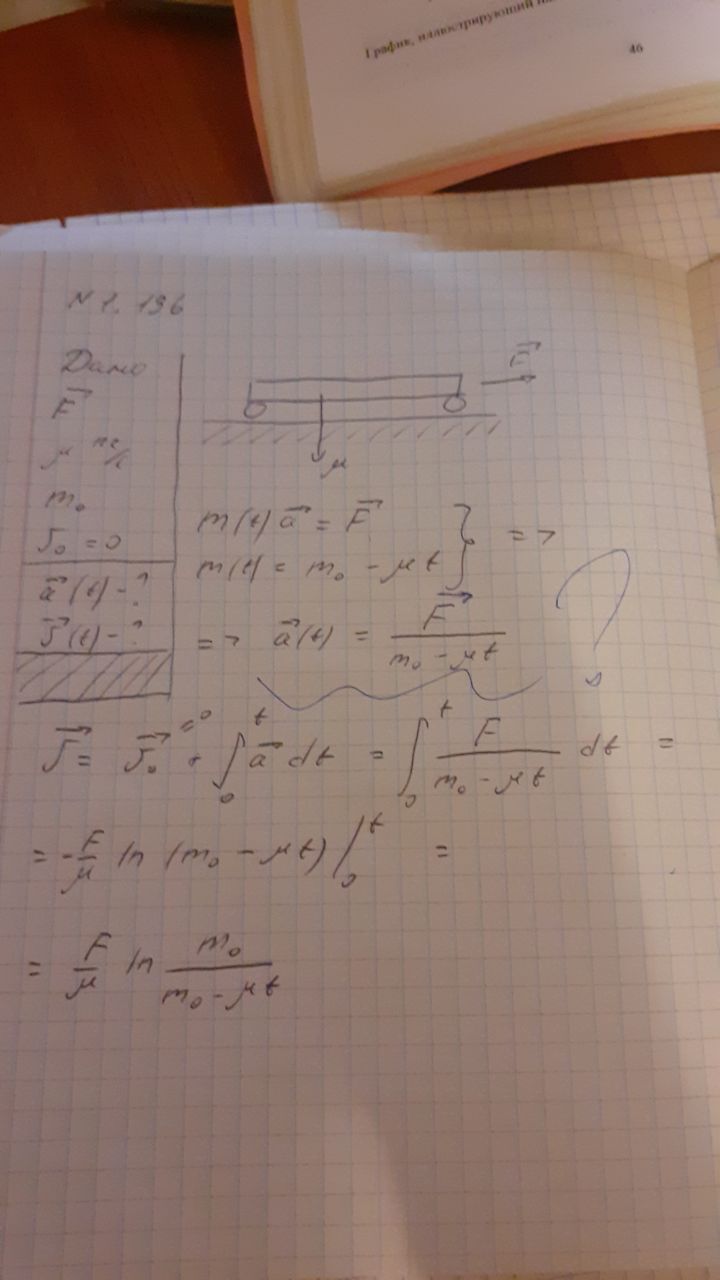 График, иллюстрирующий
46
N 1.196
Дано
F⃗
μ кг/с
m₀
v₀ = 0
a⃗(t) - ?
v⃗(t) - ?
F⃗
μ
m(t) a⃗ = F⃗
m(t) = m₀ - μt } =>
=> a⃗(t) = F⃗ / (m₀ - μt)
v⃗ = v⃗₀ ⁼⁰ + ∫₀ᵗ a⃗ dt = ∫₀ᵗ F / (m₀ - μt) dt =
= - F/μ ln (m₀ - μt) |₀ᵗ =
= F/μ ln m₀ / (m₀ - μt)